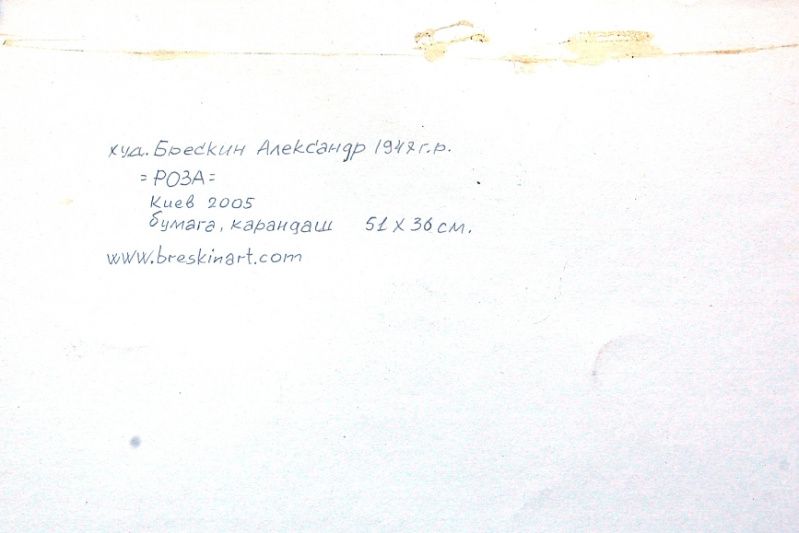 худ. Брескин Александр 1947г.р.
= РОЗА =
Киев 2005
бумага, карандаш 51 х 36 см.
www.breskinart.com